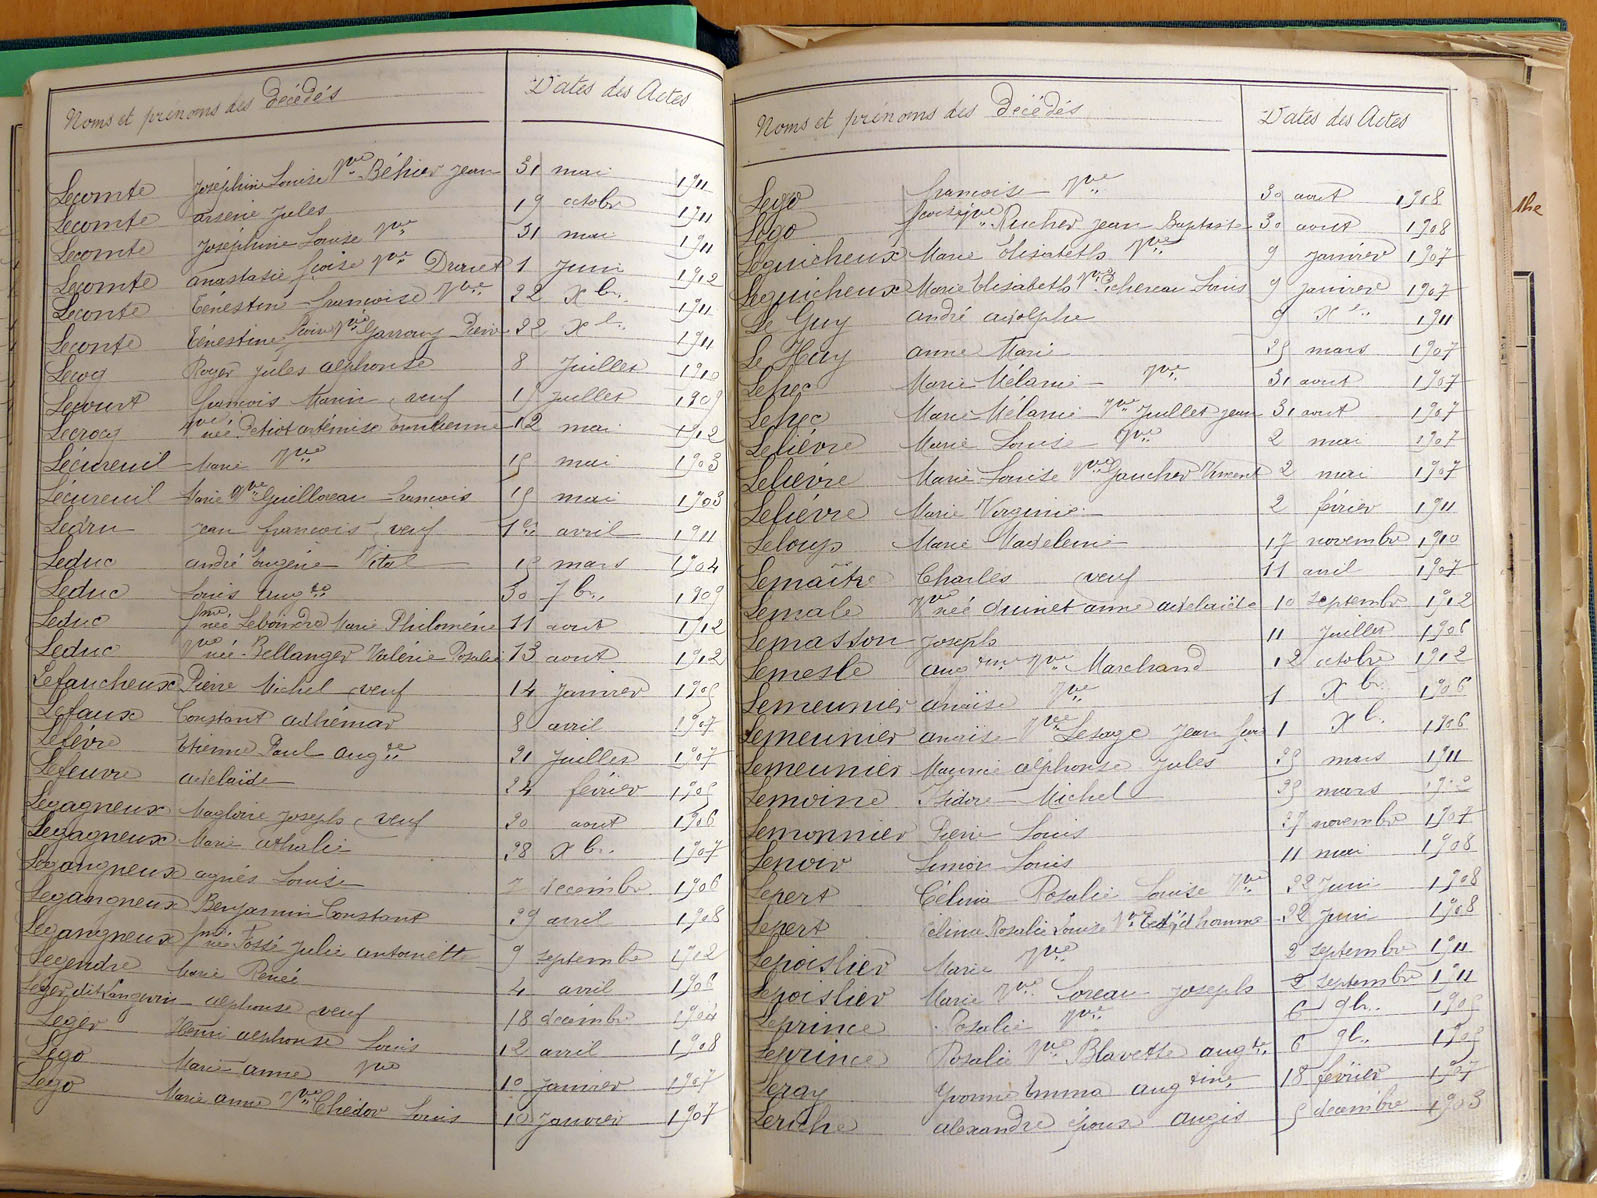 Noms et prénoms des Décédés Dates des Actes
Lecomte Joséphine Louise Vve Béhier Jean 31 mai 1911
Lecomte arsène Jules 19 octobre 1911
Lecomte Joséphine Louise Vve 31 mai 1911
Lecomte anastasie fçoise Vve Drouet 1 Juin 1912
Leconte Ernestine francoise Vve 22 Xbre 1911
Leconte Ernestine Vve Garreau Pierre 22 Xbre 1911
Lecoq Roger Jules alphonse 8 Juillet 1910
Lecourt francois Marin veuf 15 Juillet 1909
Lecrocq Vve née Petiot artémise 12 mai 1912
Lécureuil Marie Vve 15 mai 1903
Lécureuil Marie Vve Guilloreau francois 15 mai 1903
Ledru Jean francois veuf 1er avril 1911
Leduc andré Eugène Vital 15 mars 1904
Leduc Louis Augte 30 7bre 1909
Leduc fme née Marie Philomène 11 aout 1912
Leduc Vve née Bellanger Valérie Rosalie 13 aout 1912
Lefaucheux Pierre Michel veuf 14 Janvier 1905
Lefaux Constant adhémar 8 avril 1907
Lefèvre Etienne Paul augte 21 Juillet 1907
Lefeuvre adelaïde 24 février 1905
Legagneux Magloire Joseph veuf 20 aout 1906
Legagneux Marie athalie 28 Xbre 1907
Legangneux agnès Louise 7 decembre 1906
Legangneux Benjamin Constant 29 avril 1908
Legangneux fme née Fossé Julie antoinette 9 septembre 1912
Legendre Marie Renée 4 avril 1906
Leger dit Langevin alphonse veuf 18 decembre 1904
Leger Henri alphonse Louis 12 avril 1908
Lego Marie anne Vve 10 Janvier 1907
Lego Marie anne Vve Chédor Louis 10 Janvier 1907
Noms et prénoms des Décédés Dates des Actes
Lego francoise Vve 30 aout 1908
Lego francoise Vve Rocher Jean Baptiste 30 aout 1908
Leguicheux Marie Elisabeth Vve 9 janvier 1907
Leguicheux Marie Elisabeth Vve Pichereau Louis 9 janvier 1907
Le Guy andré adolphe 9 Xbre 1911
Le Hay anne Marie 25 mars 1907
Lehec Marie Mélanie Vve 31 aout 1907
Lehec Marie Mélanie Vve Juillet jean 31 aout 1907
Lelièvre Marie Louise Vve 2 mai 1907
Lelièvre Marie Louise Vve Gaucher Vincent 2 mai 1907
Lelièvre Marie Virginie 2 février 1911
Leloup Marie Madeleine 17 novembre 1910
Lemaître Charles veuf 11 avril 1907
Lemale Vve née Quinet anne adelaïde 10 septembre 1912
Lemasson Joseph 11 Juillet 1906
Lemesle augtine Vve Marchand 12 octobre 1912
Lemeunier anaïse Vve 1 Xbre 1906
Lemeunier anaïse Vve Lesage Jean 1 Xbre 1906
Lemeunier Maurice alphonse Jules 25 mars 1911
Lemoine Isidore Michel 25 mars
Lemonnier Pierre Louis 27 novembre 1907
Lenoir Simon Louis 11 mai 1908
Lepert Célina Rosalie Louise Vve 22 Juin 1908
Lepert Célina Rosalie Louise Vve 22 Juin 1908
Lepoislier Marie Vve 2 septembre 1911
Lepoislier Marie Vve Loreau Joseph 2 septembre 1911
Leprince Rosalie Vve 6 9bre 1905
Leprince Rosalie Vve Blavette augte 6 9bre 1905
Leray Yvonne Emma augtine 18 février 1907
Leriche alexandre époux augis 5 decembre 1903
the